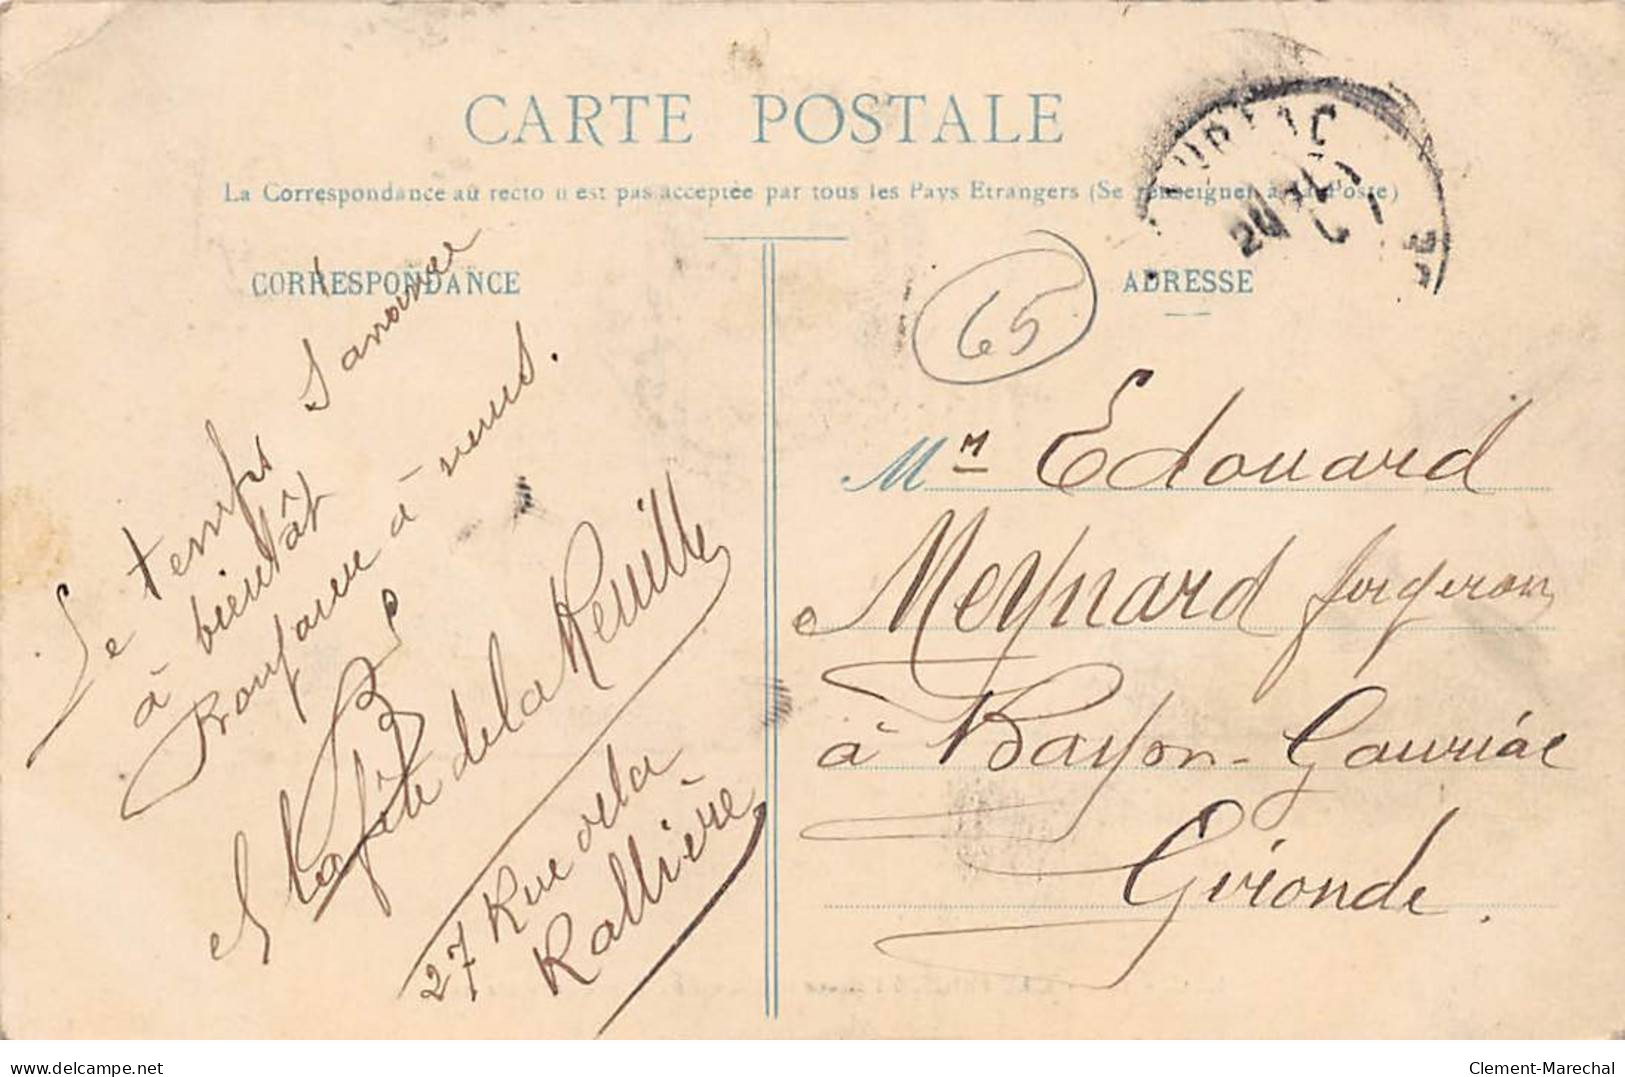 CARTE POSTALE
La Correspondance au recto n'est pas acceptée par tous les Pays Etrangers (Se renseigner à la Poste)
CORRESPONDANCE
Le temps s'avance
à bientôt
Bonjour à vous.
27 Rue de la
Raillière
65
ADRESSE
Mr Edouard
Meynard forgeron
à Bayon-Gauriac
Gironde.
delcampe.net
Clement-Marechal